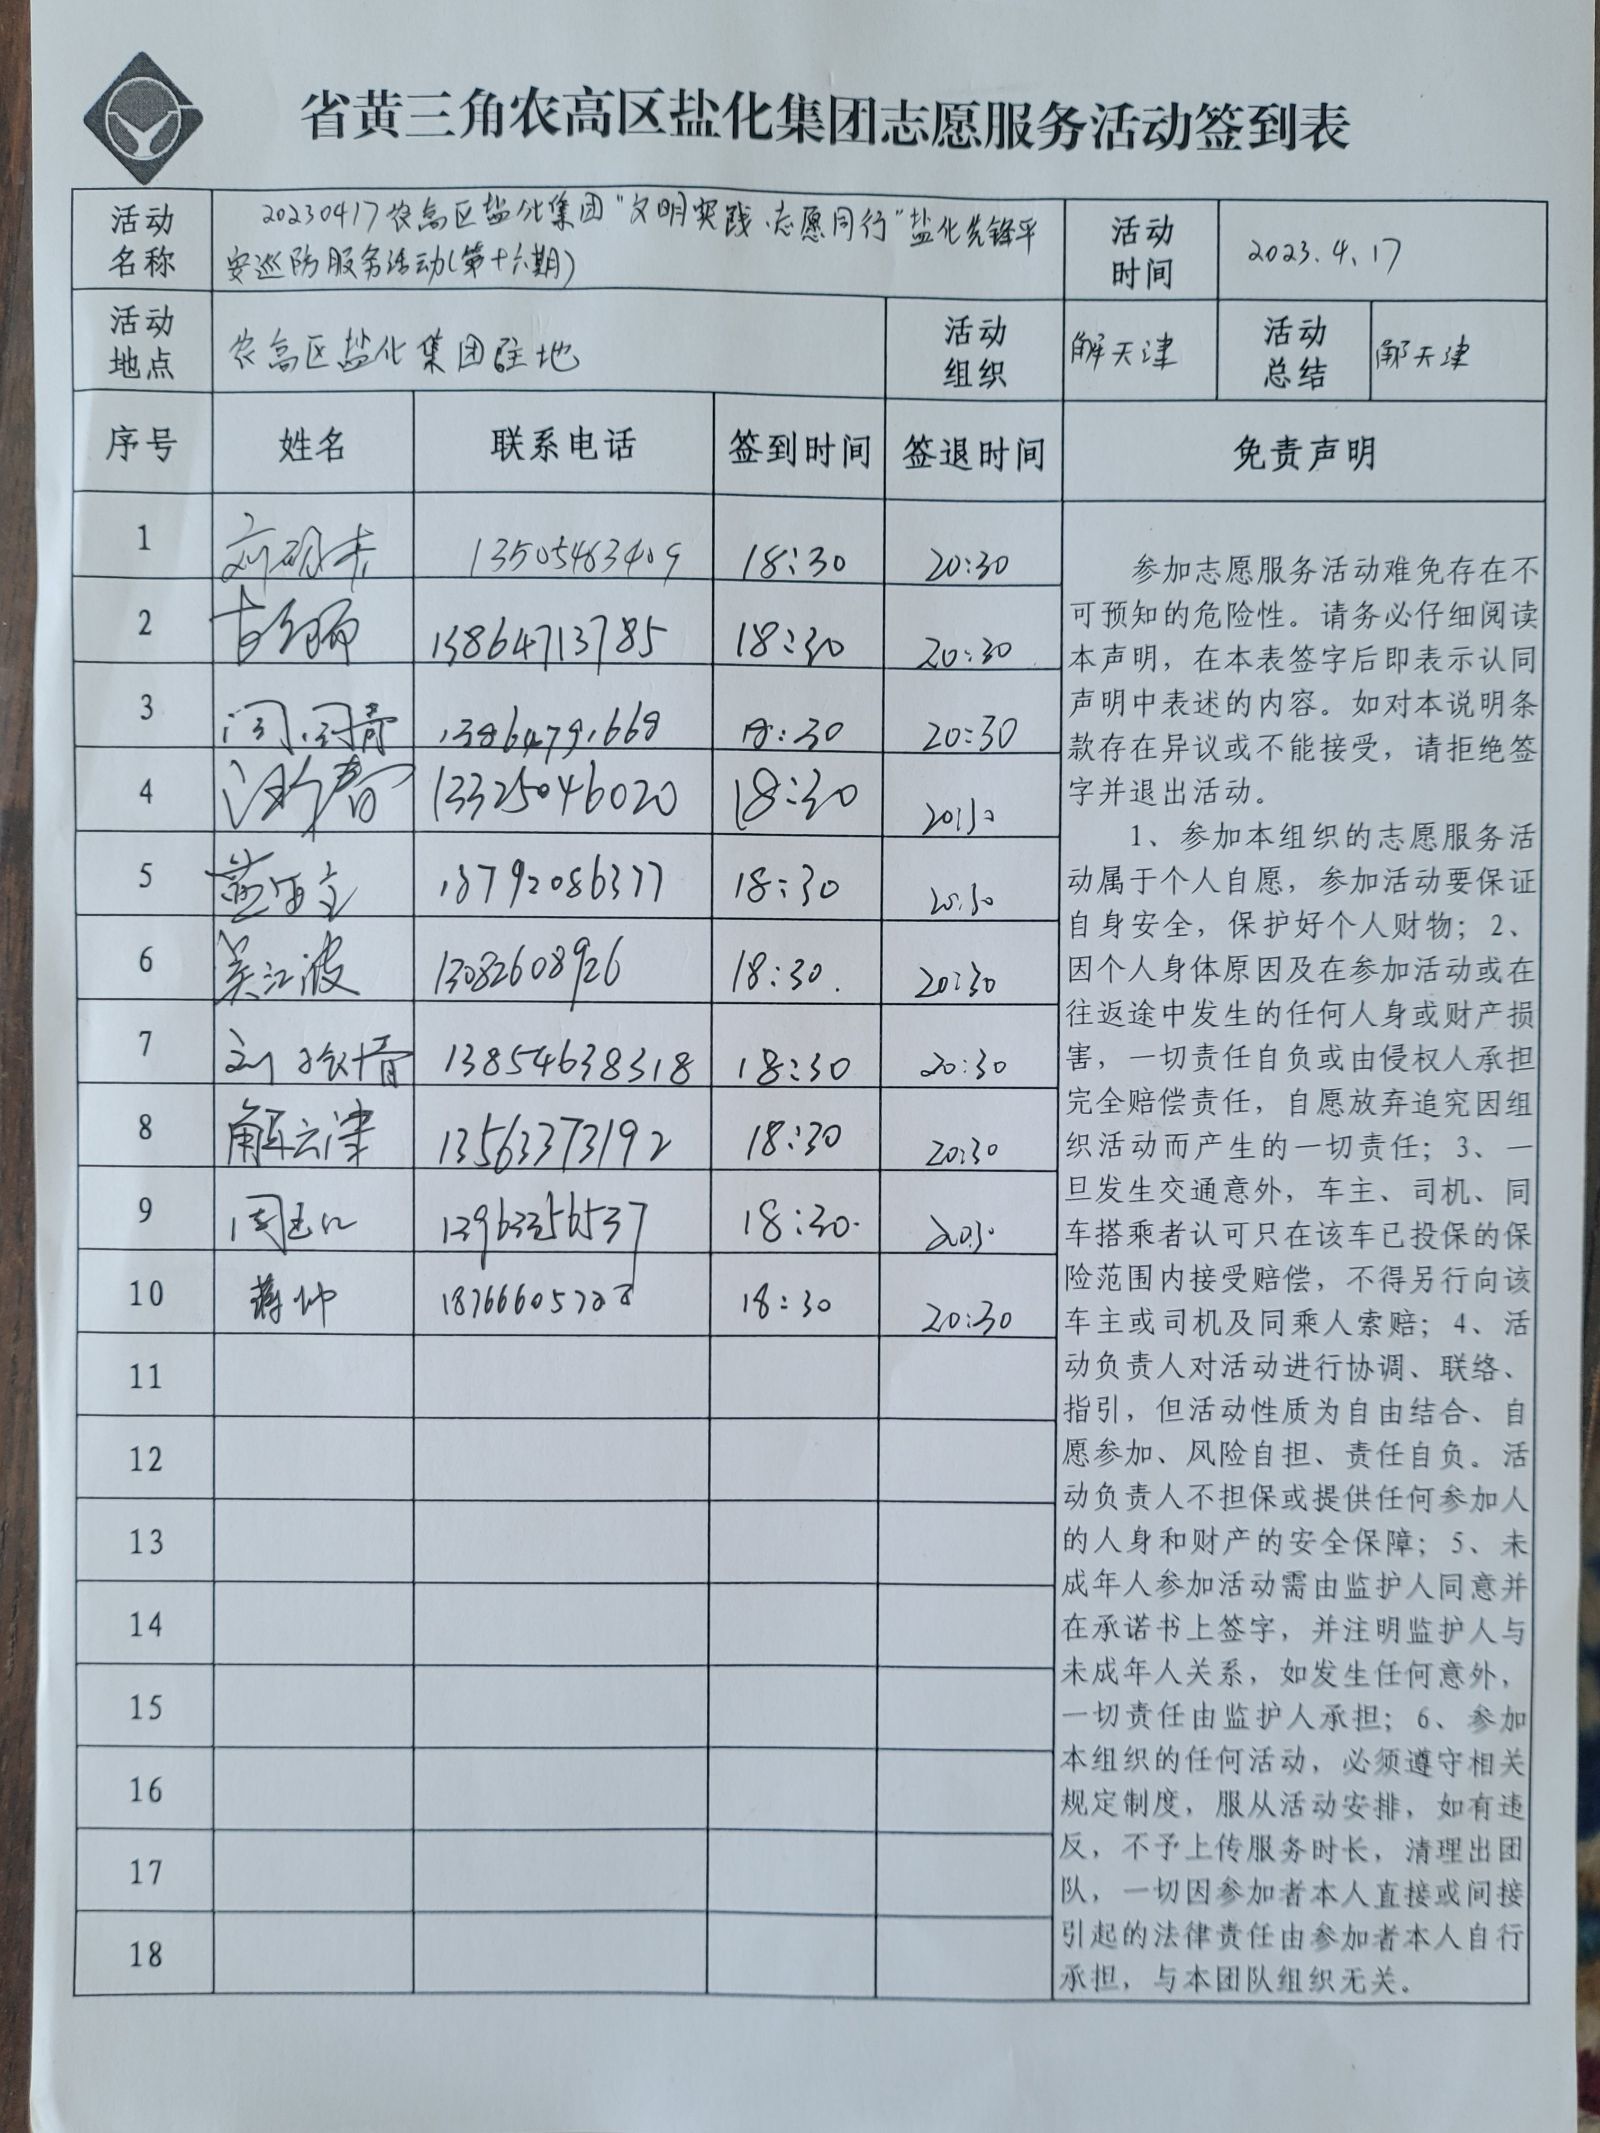 省黄三角农高区盐化集团志愿服务活动签到表
活动名称
20230417农高区盐化集团"文明实践·志愿同行"盐化先锋平
安巡防服务活动(第十六期)
活动时间
2023.4.17
活动地点
农高区盐化集团驻地
活动组织
解天津
活动总结
解天津
序号 姓名 联系电话 签到时间 签退时间 免责声明
1 13505463409 18:30 20:30
2 13864713785 18:30 20:30
3 13864791668 18:30 20:30
4 13325046020 18:30 20:30
5 13792086377 18:30 20:30
6 吴江波 13082608926 18:30. 20:30
7 13854638318 18:30 20:30
8 解云津 13563373192 18:30 20:30
9 18:30. 20:30
10 蒋坤 18:30 20:30
11
12
13
14
15
16
17
18
参加志愿服务活动难免存在不
可预知的危险性。请务必仔细阅读
本声明，在本表签字后即表示认同
声明中表述的内容。如对本说明条
款存在异议或不能接受，请拒绝签
字并退出活动。
1、参加本组织的志愿服务活
动属于个人自愿，参加活动要保证
自身安全，保护好个人财物；2、
因个人身体原因及在参加活动或在
往返途中发生的任何人身或财产损
害，一切责任自负或由侵权人承担
完全赔偿责任，自愿放弃追究因组
织活动而产生的一切责任；3、一
旦发生交通意外，车主、司机、同
车搭乘者认可只在该车已投保的保
险范围内接受赔偿，不得另行向该
车主或司机及同乘人索赔；4、活
动负责人对活动进行协调、联络、
指引，但活动性质为自由结合、自
愿参加、风险自担、责任自负。活
动负责人不担保或提供任何参加人
的人身和财产的安全保障；5、未
成年人参加活动需由监护人同意并
在承诺书上签字，并注明监护人与
未成年人关系，如发生任何意外，
一切责任由监护人承担；6、参加
本组织的任何活动，必须遵守相关
规定制度，服从活动安排，如有违
反，不予上传服务时长，清理出团
队，一切因参加者本人直接或间接
引起的法律责任由参加者本人自行
承担，与本团队组织无关。